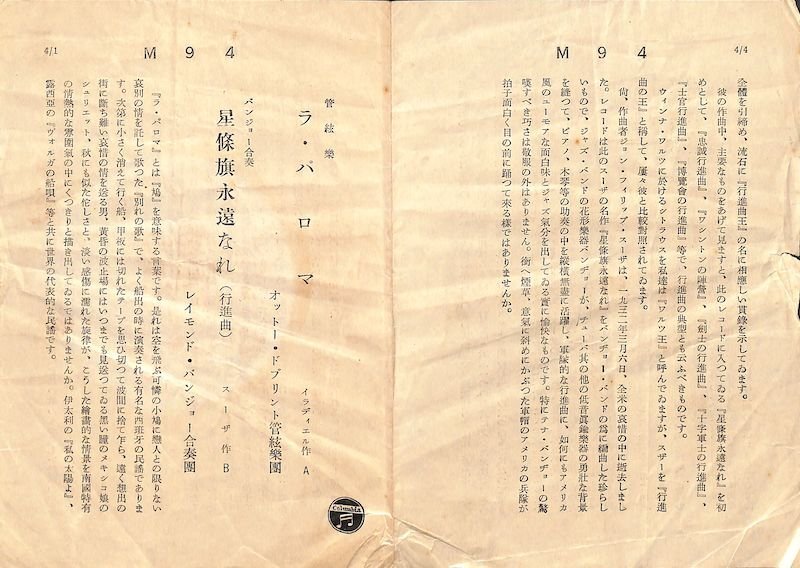 4/4
M94
全體を引締め、流石に『行進曲王』の名に相應しい貫錄を示してゐます。
彼の作曲中、主要なものをあげて見ますと、此のレコードに入つてゐる『星條旗永遠なれ』を初
めとして、『忠誠行進曲』、『ワシントンの陣營』、『劍士の行進曲』、『十字軍士の行進曲』、
『士官行進曲』、『博覽會の行進曲』等で、行進曲の典型とも云ふべきものです。
ウィンナ・ワルツに於けるシトラウスを私達は『ワルツ王』と呼んでゐますが、スザーを『行進
曲の王』と稱して、屢々彼と比較對照されてゐます。
尙、作曲者ジョン・フィリップ・スーザは、一九三二年三月六日、全米の哀惜の中に逝去しまし
た。レコードは此のスーザの名作『星條旗永遠なれ』をバンヂョー・バンドの爲に編曲した珍らし
いもので、ジャズ・バンドの花形樂器バンヂョーが、チューバ其の他の低音眞鍮樂器の勇壯な背景
を縫つて、ピアノ、木琴等の助奏の中を縱橫無盡に活躍し、軍隊的な行進曲に、如何にもアメリカ
風のユーモアな面白味とジャズ氣分を出してゐる實に愉快なものです。特にテナ・バンヂョーの驚
嘆すべき巧さは敬服の外はありません。銜へ煙草、意氣に斜めにかぶつた軍帽のアメリカの兵隊が
拍子面白く目の前に踊つて來る樣ではありませんか。
4/1
M94
管絃樂
ラ・パロマ
イラディエル作 A
オットー・ドブリント管絃樂團
バンジョー合奏
星條旗永遠なれ(行進曲)
スーザ作 B
レイモンド・バンジョー合奏團
『ラ・パロマ』とは『鳩』を意味する言葉です。是れは空を飛ぶ可憐の小鳩に戀人との限りない
哀別の情を託して歌つた『別れの歌』で、よく船出の時に演奏される有名な西班牙の民謠でありま
す。次第に小さく消えて行く船、甲板には切れたテープを思ひ切つて波間に捨て乍ら、遠く想出の
街に斷ち難い哀惜の情を送る男、黃昏の波止場にはいつまでも見送つてゐる黑い瞳のメキシコ娘の
シュリエット、秋にも似た佗しさと、淡い感傷に濡れた旋律が、こうした繪畫的な情景を南國特有
の情熱的な雰圍氣の中にくつきりと描き出してゐるではありませんか。伊太利の『私の太陽よ』、
露西亞の『ヴォルガの船唄』等と共に世界の代表的な民謠です。
Columbia